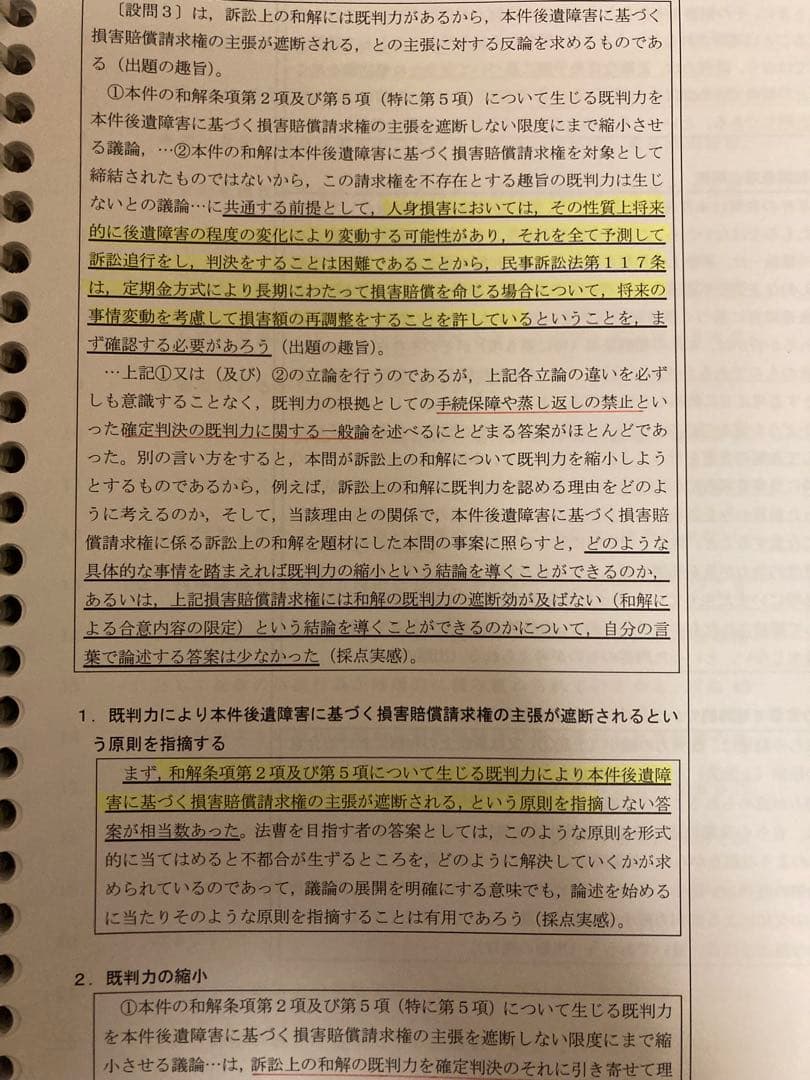 〔設問３〕は，訴訟上の和解には既判力があるから，本件後遺障害に基づく
損害賠償請求権の主張が遮断される，との主張に対する反論を求めるものであ
る（出題の趣旨）。
①本件の和解条項第２項及び第５項（特に第５項）について生じる既判力を
本件後遺障害に基づく損害賠償請求権の主張を遮断しない限度にまで縮小させ
る議論，…②本件の和解は本件後遺障害に基づく損害賠償請求権を対象として
締結されたものではないから，この請求権を不存在とする趣旨の既判力は生じ
ないとの議論…に共通する前提として，人身損害においては，その性質上将来
的に後遺障害の程度の変化により変動する可能性があり，それを全て予測して
訴訟追行をし，判決をすることは困難であることから，民事訴訟法第１１７条
は，定期金方式により長期にわたって損害賠償を命じる場合について，将来の
事情変動を考慮して損害額の再調整をすることを許しているということを，ま
ず確認する必要があろう（出題の趣旨）。
…上記①又は（及び）②の立論を行うのであるが，上記各立論の違いを必ず
しも意識することなく，既判力の根拠としての手続保障や蒸し返しの禁止とい
った確定判決の既判力に関する一般論を述べるにとどまる答案がほとんどであ
った。別の言い方をすると，本問が訴訟上の和解について既判力を縮小しよう
とするものであるから，例えば，訴訟上の和解に既判力を認める理由をどのよ
うに考えるのか，そして，当該理由との関係で，本件後遺障害に基づく損害賠
償請求権に係る訴訟上の和解を題材にした本問の事案に照らすと，どのような
具体的な事情を踏まえれば既判力の縮小という結論を導くことができるのか，
あるいは，上記損害賠償請求権には和解の既判力の遮断効が及ばない（和解に
よる合意内容の限定）という結論を導くことができるのかについて，自分の言
葉で論述する答案は少なかった（採点実感）。
１．既判力により本件後遺障害に基づく損害賠償請求権の主張が遮断されるとい
う原則を指摘する
まず，和解条項第２項及び第５項について生じる既判力により本件後遺障
害に基づく損害賠償請求権の主張が遮断される，という原則を指摘しない答
案が相当数あった。法曹を目指す者の答案としては，このような原則を形式
的に当てはめると不都合が生ずるところを，どのように解決していくかが求
められているのであって，議論の展開を明確にする意味でも，論述を始める
に当たりそのような原則を指摘することは有用であろう（採点実感）。
２．既判力の縮小
①本件の和解条項第２項及び第５項（特に第５項）について生じる既判力
を本件後遺障害に基づく損害賠償請求権の主張を遮断しない限度にまで縮
小させる議論…は，訴訟上の和解の既判力を確定判決のそれに引き寄せて理